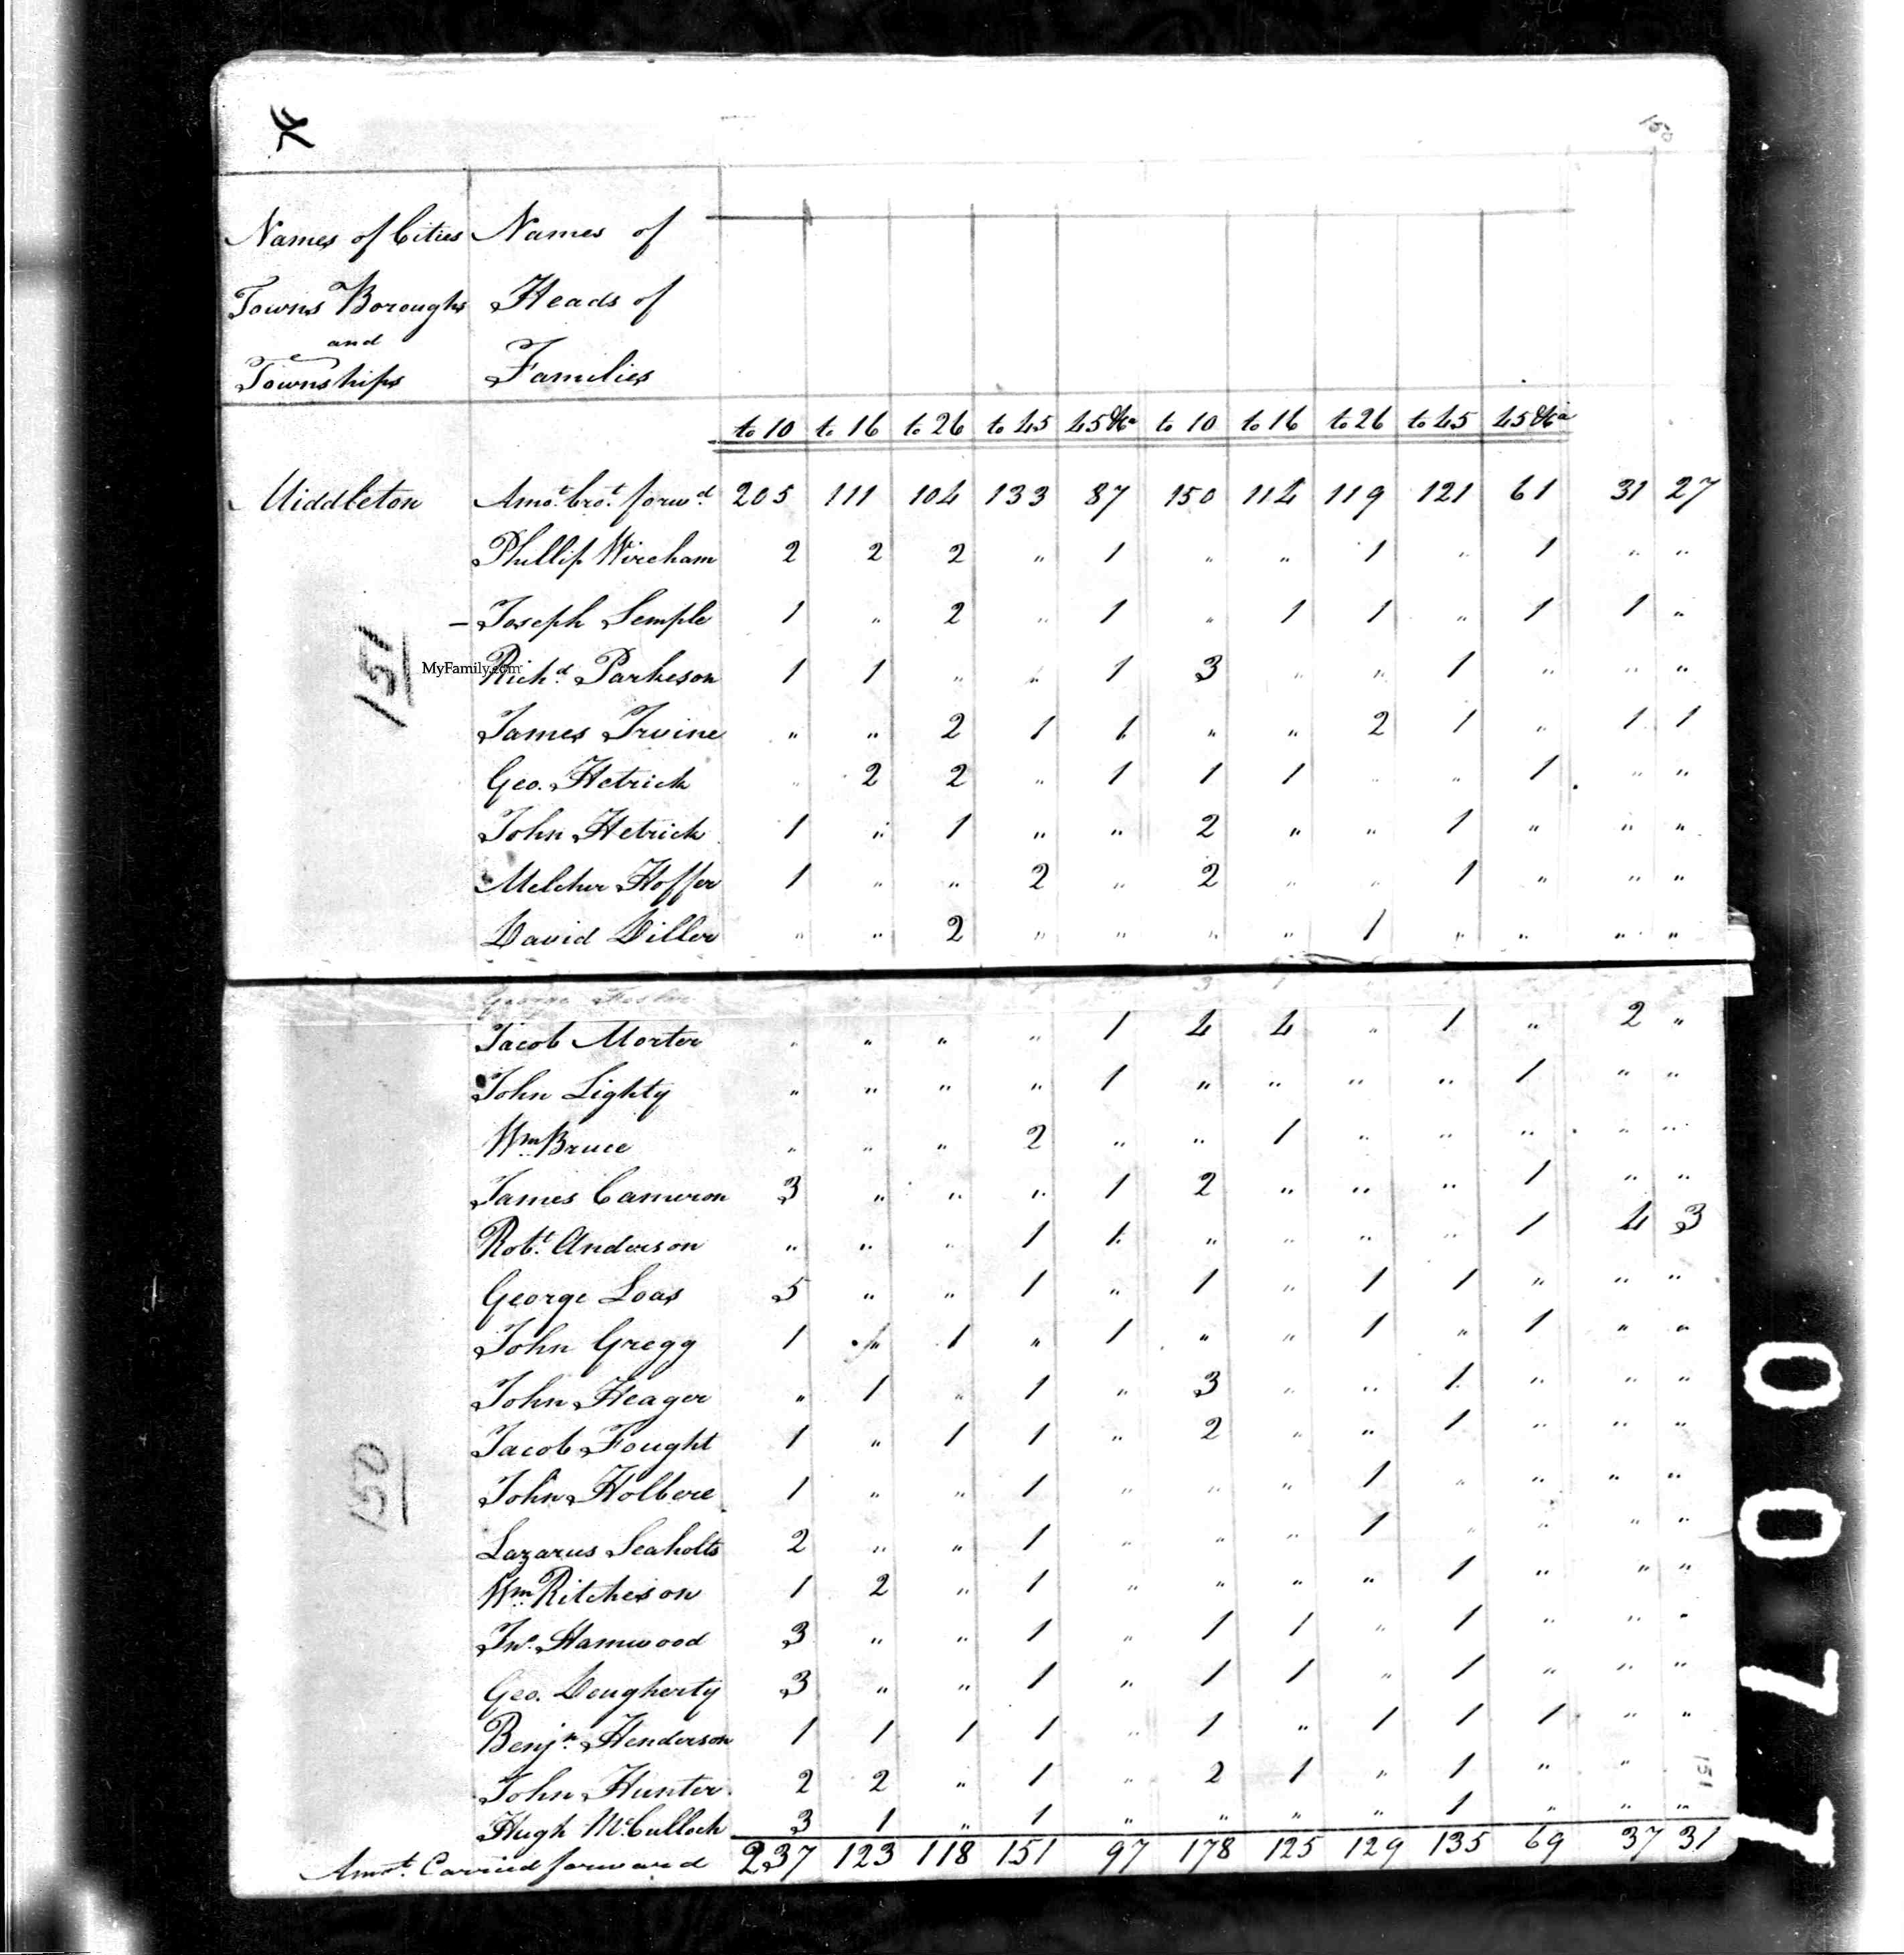 150
Names of Cities Names of
Towns Boroughs Heads of
and
Townships Families
to 10 to 16 to 26 to 45 45 &c to 10 to 16 to 26 to 45 45 &c
Middleton Amot. brot. forwd. 205 111 104 133 87 150 114 119 121 61 31 27
Phillip Wircham 2 2 2 " 1 " " 1 " 1 " "
Joseph Semple 1 " 2 " 1 " 1 1 " 1 1 "
151
MyFamily.com
Richd. Parkeson 1 1 " " 1 3 " " 1 " " "
James Irvine " " 2 1 1 " " 2 1 " 1 1
Geo. Hetrick " 2 2 " 1 1 1 " " 1 " "
John Hetrick 1 " 1 " " 2 " " 1 " " "
Melcher Hoffer 1 " " 2 " 2 " " 1 " " "
David Diller " " 2 " " " " 1 " " " "
George
Jacob Morter " " " " 1 4 4 " 1 " 2 "
John Lighty " " " " 1 " " " " 1 " "
Wm. Bruce " " " 2 " " 1 " " " " "
James Cameron 3 " " " 1 2 " " " 1 " "
Robt. Anderson " " " 1 1 " " " " 1 4 3
George Loas 5 " " 1 " 1 " 1 1 " " "
John Gregg 1 " 1 " 1 " " 1 " 1 " "
John Heager " 1 " 1 " 3 " " 1 " " "
Jacob Fought 1 " 1 1 " 2 " " 1 " " "
150
John Holbere 1 " " 1 " " " 1 " " " "
Lazarus Seaholts 2 " " 1 " " " 1 " " " "
Wm. Ritcheson 1 2 " 1 " " " " 1 " " "
Jno. Hamwood 3 " " 1 " 1 1 " 1 " " "
Geo. Dougherty 3 " " 1 " 1 1 " 1 " " "
Benjn. Henderson 1 1 1 1 " 1 " 1 1 1 " "
John Hunter 2 2 " 1 " 2 1 " 1 " "
151
Hugh McCulloch 3 1 " 1 " " " " 1 " " "
Amot. Carried forward 237 123 118 151 97 178 125 129 135 69 37 31
0077